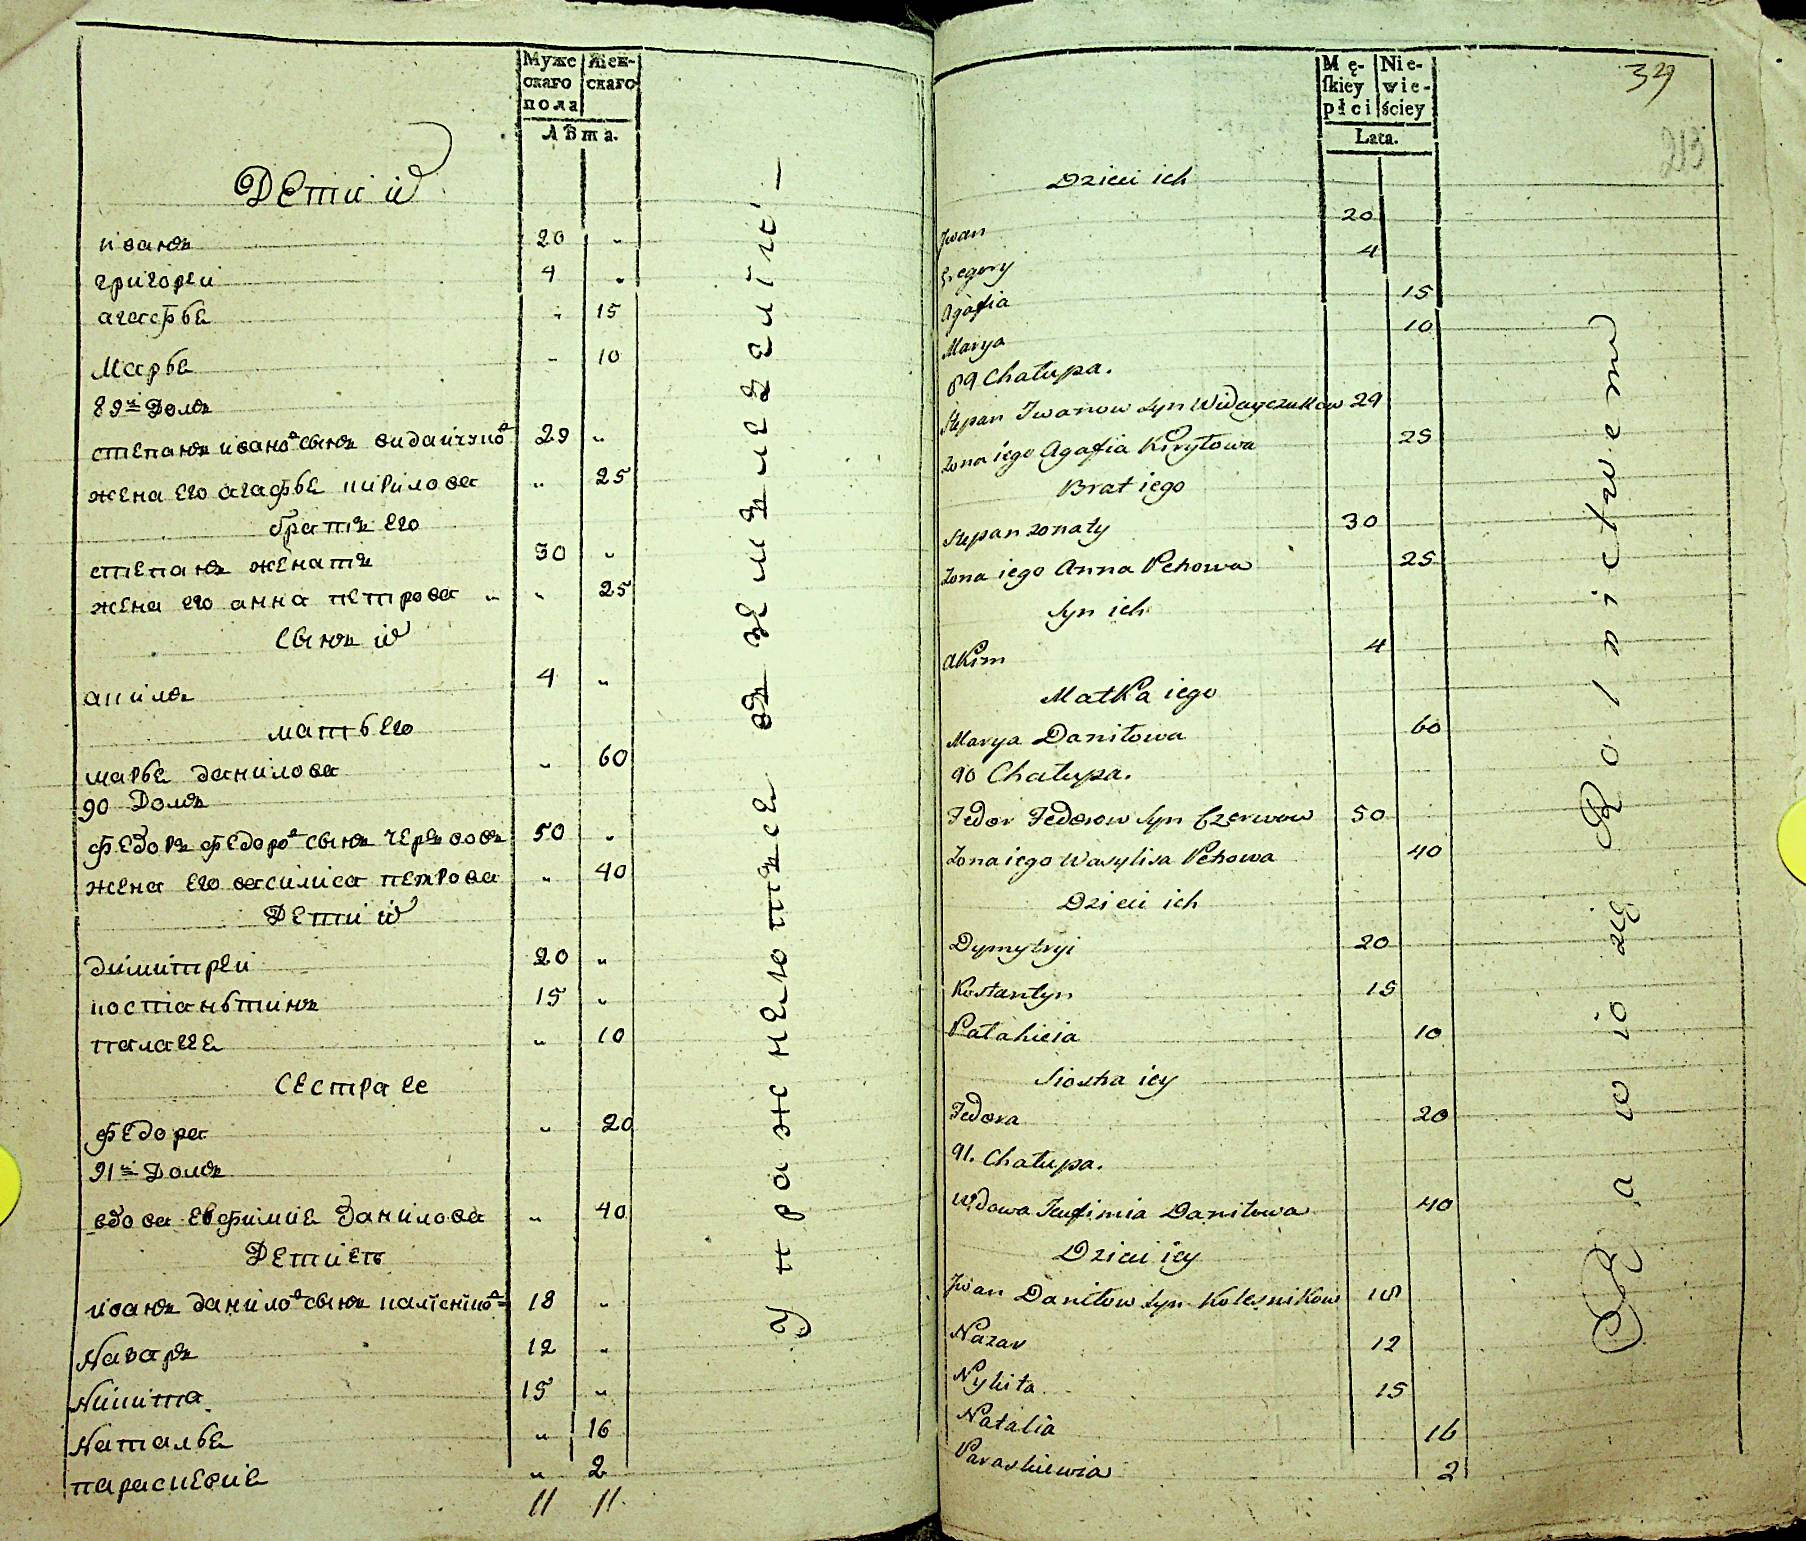 Муже Жен-
скаго скаго
пола
Лѣта.
Дети их
Иванъ 20 "
григореи 4 "
агафья " 15
Марья " 10
89й Домъ
степанъ ивановъ сынъ видайчуковъ 29 "
жена его агафья кирилова " 25
братъ его
степанъ женатъ 30 "
жена его анна петрова " " 25
сынъ их
акимъ 4 "
мать его
марья данилова " 60
90 Домъ
федоръ федоровъ сынъ червовъ 50 "
жена его василиса петрова " 40
Дети их
димитреи 20 "
костаньтинъ 15 "
палагея " 10
сестра ее
федора " 20
91й Домъ
вдова евфимия данилова " 40
Дети еѣ
иванъ даниловъ сынъ калесниковъ 18 "
Назаръ 12 "
Никита 15 "
Наталья " 16
параскевия " 2
11 11
упражнеютъся въ земледелие
Mę- Nie-
skiey wie-
płci ściey
Lata.
39
213
Dzieci ich
Jwan 20
Gregory 4
Agafia 15
Marya 10
89 Chałupa.
Stepan Jwanow syn Widayczukow 29
Zona iego Agafia Kiryłowa 25
Brat iego
Stepan zonaty 30
Zona iego Anna Petrowa 25
Syn ich
Akim 4
Matka iego
Marya Daniłowa 60
90 Chałupa.
Fedor Fedorow syn Czerwow 50
Zona iego Wasylisa Petrowa 40
Dzieci ich
Dymytryi 20
Kostantyn 15
Pałahieia 10
Siostra iey
Fedora 20
91. Chałupa.
Wdowa Jeufimia Daniłowa 40
Dzieci iey
Jwan Daniłow syn Kolesnikow 18
Nazar 12
Nykita 15
Natalia 16
Paraskiewia 2
Bawią się Rolnictwem